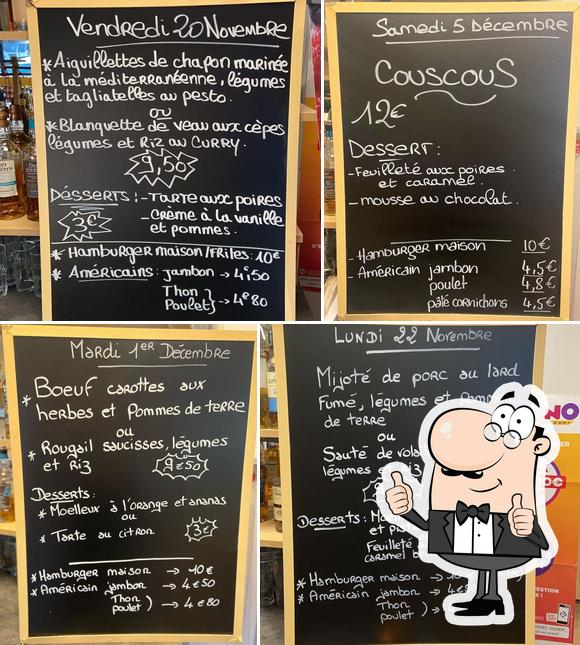 Vendredi 20 Novembre
* Aiguillettes de chapon marinée
à la méditerranéenne, légumes
et tagliatelles au pesto.
ou
* Blanquette de veau aux cèpes
légumes et Riz au CURRY.
9,50
Désserts : - Tarte aux poires
- crème à la vanille
et pommes.
3€
* Hamburger maison / Frites : 10€
* Américains : jambon → 4€,50
Thon
Poulet } → 4€80
Samedi 5 Décembre
Couscous
12€
Dessert :
- Feuilleté aux poires
et caramel.
- mousse au chocolat.
- Hamburger maison 10€
- Américain jambon 4,5€
poulet 4,8€
pâté cornichons 4,5€
Mardi 1er Décembre
* Boeuf carottes aux
herbes et Pommes de terre
ou
* Rougail saucisses, légumes
et Riz
9€50
Desserts :
* Moelleux à l'orange et ananas
ou
* Tarte au citron
3€
* Hamburger maison → 10€
* Américain jambon → 4€50
Thon
poulet ) → 4€80
Lundi 22 Novembre
Mijoté de porc au lard
Fumé, légumes et
de terre
ou
Sauté de
légumes
Desserts :
et
Feuilleté
caramel
* Hamburger maison →
* Américain jambon →
Thon
poulet ) →